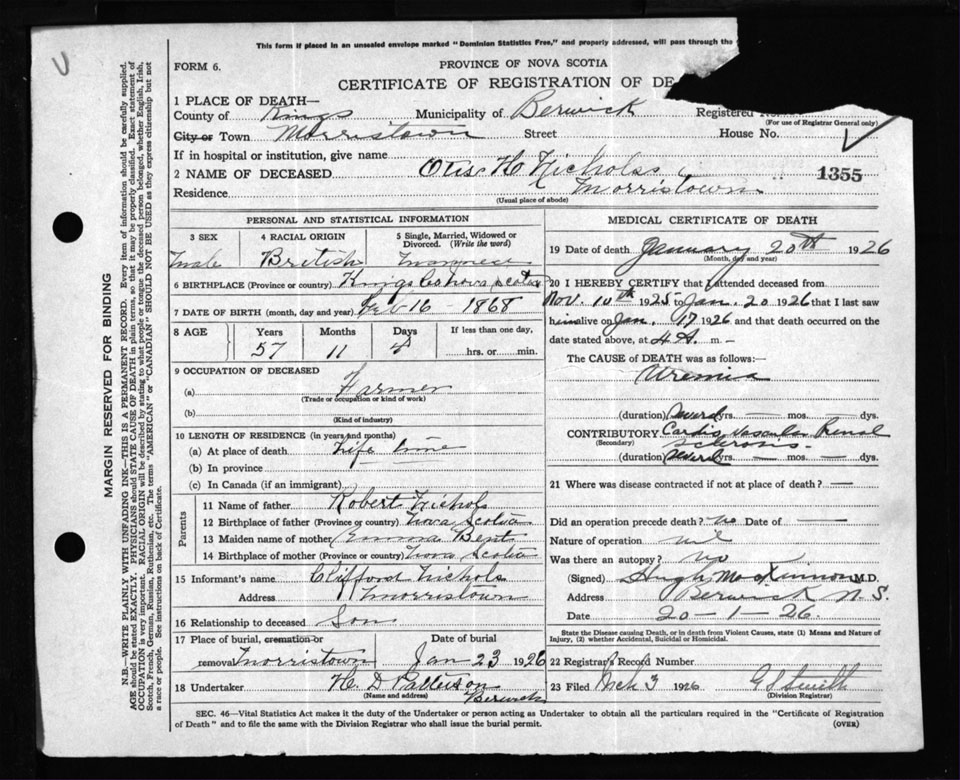 U
This form if placed in an unsealed envelope marked "Dominion Statistics Free," and properly addressed, will pass through the
FORM 6.
PROVINCE OF NOVA SCOTIA
CERTIFICATE OF REGISTRATION OF DE
1 PLACE OF DEATH—
County of Kings Municipality of Berwick Registered No.
(For use of Registrar General only)
City or Town Morristown Street House No.
If in hospital or institution, give name
2 NAME OF DECEASED Otis H Nichols 1355
Residence Morristown
(Usual place of abode)
MARGIN RESERVED FOR BINDING
N.B.—WRITE PLAINLY WITH UNFADING INK—THIS IS A PERMANENT RECORD. Every item of information should be carefully supplied.
AGE should be stated EXACTLY. PHYSICIANS should STATE CAUSE OF DEATH in plain terms, so that it may be properly classified. Exact statement of
OCCUPATION is very important. RACIAL ORIGIN will be described by stating to what people or tongue the deceased person belonged, whether English, Irish,
Scotch, French, German, Russian, Ruthenian, etc. The terms "AMERICAN" or "CANADIAN" SHOULD NOT BE USED as they express citizenship but not
a race or people. See instructions on back of Certificate.
PERSONAL AND STATISTICAL INFORMATION
3 SEX
Male
4 RACIAL ORIGIN
British
5 Single, Married, Widowed or
Divorced. (Write the word)
6 BIRTHPLACE (Province or country) Kings Co Nova Scotia
7 DATE OF BIRTH (month, day and year) Feb 16 - 1868
8 AGE Years Months Days If less than one day,
57 11 4 hrs. or min.
9 OCCUPATION OF DECEASED
(a) Farmer
(Trade or occupation or kind of work)
(b)
(Kind of industry)
10 LENGTH OF RESIDENCE (in years and months)
(a) At place of death Life time
(b) In province
(c) In Canada (if an immigrant)
Parents
11 Name of father Robert Nichols
12 Birthplace of father (Province or country) Nova Scotia
13 Maiden name of mother Emma Bent
14 Birthplace of mother (Province or country) Nova Scotia
15 Informant's name Clifford Nichols
Address Morristown
16 Relationship to deceased Son
17 Place of burial, cremation or Date of burial
removal Morristown Jan 23 1926
18 Undertaker H. D Patterson
(Name and address) Berwick
MEDICAL CERTIFICATE OF DEATH
19 Date of death January 20th 1926
(Month, day and year)
20 I HEREBY CERTIFY that I attended deceased from
Nov. 10th 1925 to Jan. 20 1926 that I last saw
him alive on Jan. 17 1926 and that death occurred on the
date stated above, at 4 A. m.
The CAUSE OF DEATH was as follows:
Uremia
(duration) Several yrs. — mos. — dys.
CONTRIBUTORY Cardio Vascular Renal
(Secondary) Sclerosis
(duration) Several yrs. — mos. — dys.
21 Where was disease contracted if not at place of death? —
Did an operation precede death? no Date of —
Nature of operation nil
Was there an autopsy? no
(Signed) Hugh MacKinnon M.D.
Address Berwick N.S.
Date 20-1-26.
State the Disease causing Death, or in death from Violent Causes, state (1) Means and Nature of
Injury, (2) whether Accidental, Suicidal or Homicidal.
22 Registrar's Record Number
23 Filed Mch 3 1926 Smith
(Division Registrar)
SEC. 46—Vital Statistics Act makes it the duty of the Undertaker or person acting as Undertaker to obtain all the particulars required in the "Certificate of Registration
of Death" and to file the same with the Division Registrar who shall issue the burial permit. (OVER)